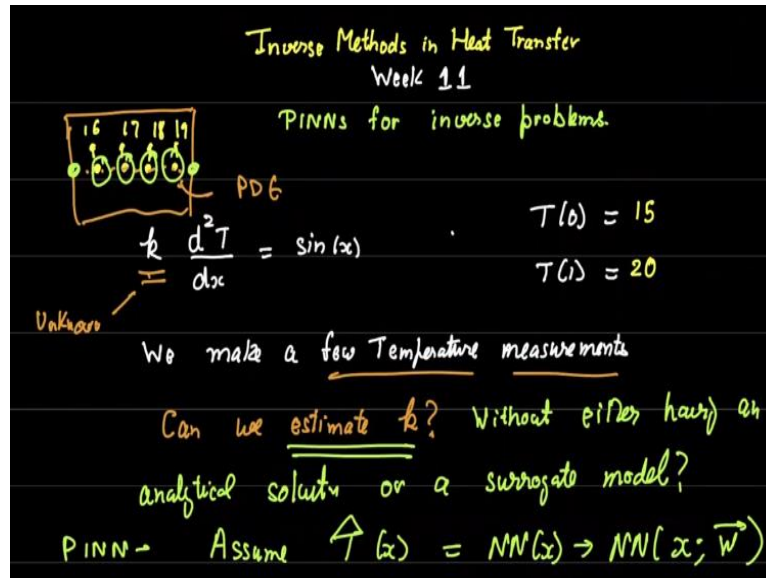 Inverse Methods in Heat Transfer
Week 11
PINNs for inverse problems.
16 17 18 19
PDE
k d²T/dx = sin(x)
T(0) = 15
T(1) = 20
Unknown
We make a few Temperature measurements
Can we estimate k? Without either having an
analytical solutn or a surrogate model?
PINN - Assume T̂(x) = NN(x) → NN(x; w⃗)